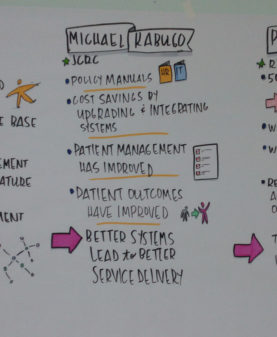 MICHAEL KABUGO
JCRC
• POLICY MANUALS
• COST SAVINGS BY
UPGRADING & INTEGRATING
SYSTEMS
• PATIENT MANAGEMENT
HAS IMPROVED
• PATIENT OUTCOMES
HAVE IMPROVED
BETTER SYSTEMS
LEAD to BETTER
SERVICE DELIVERY
E BASE
EMENT
ATURE
MENT